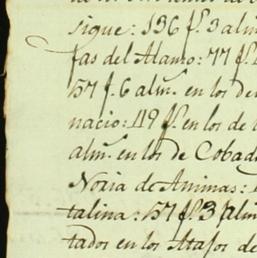 sique: 136 f.s 3 alm
fas del Alamo: 77 f.s
157 f. 6 alm.s en los de
nacio: 119 f.s en los de
alm.s en los de Cobad
Noria de Animas:
talina: 157 f.s 3 alm
tados en los Atajos de